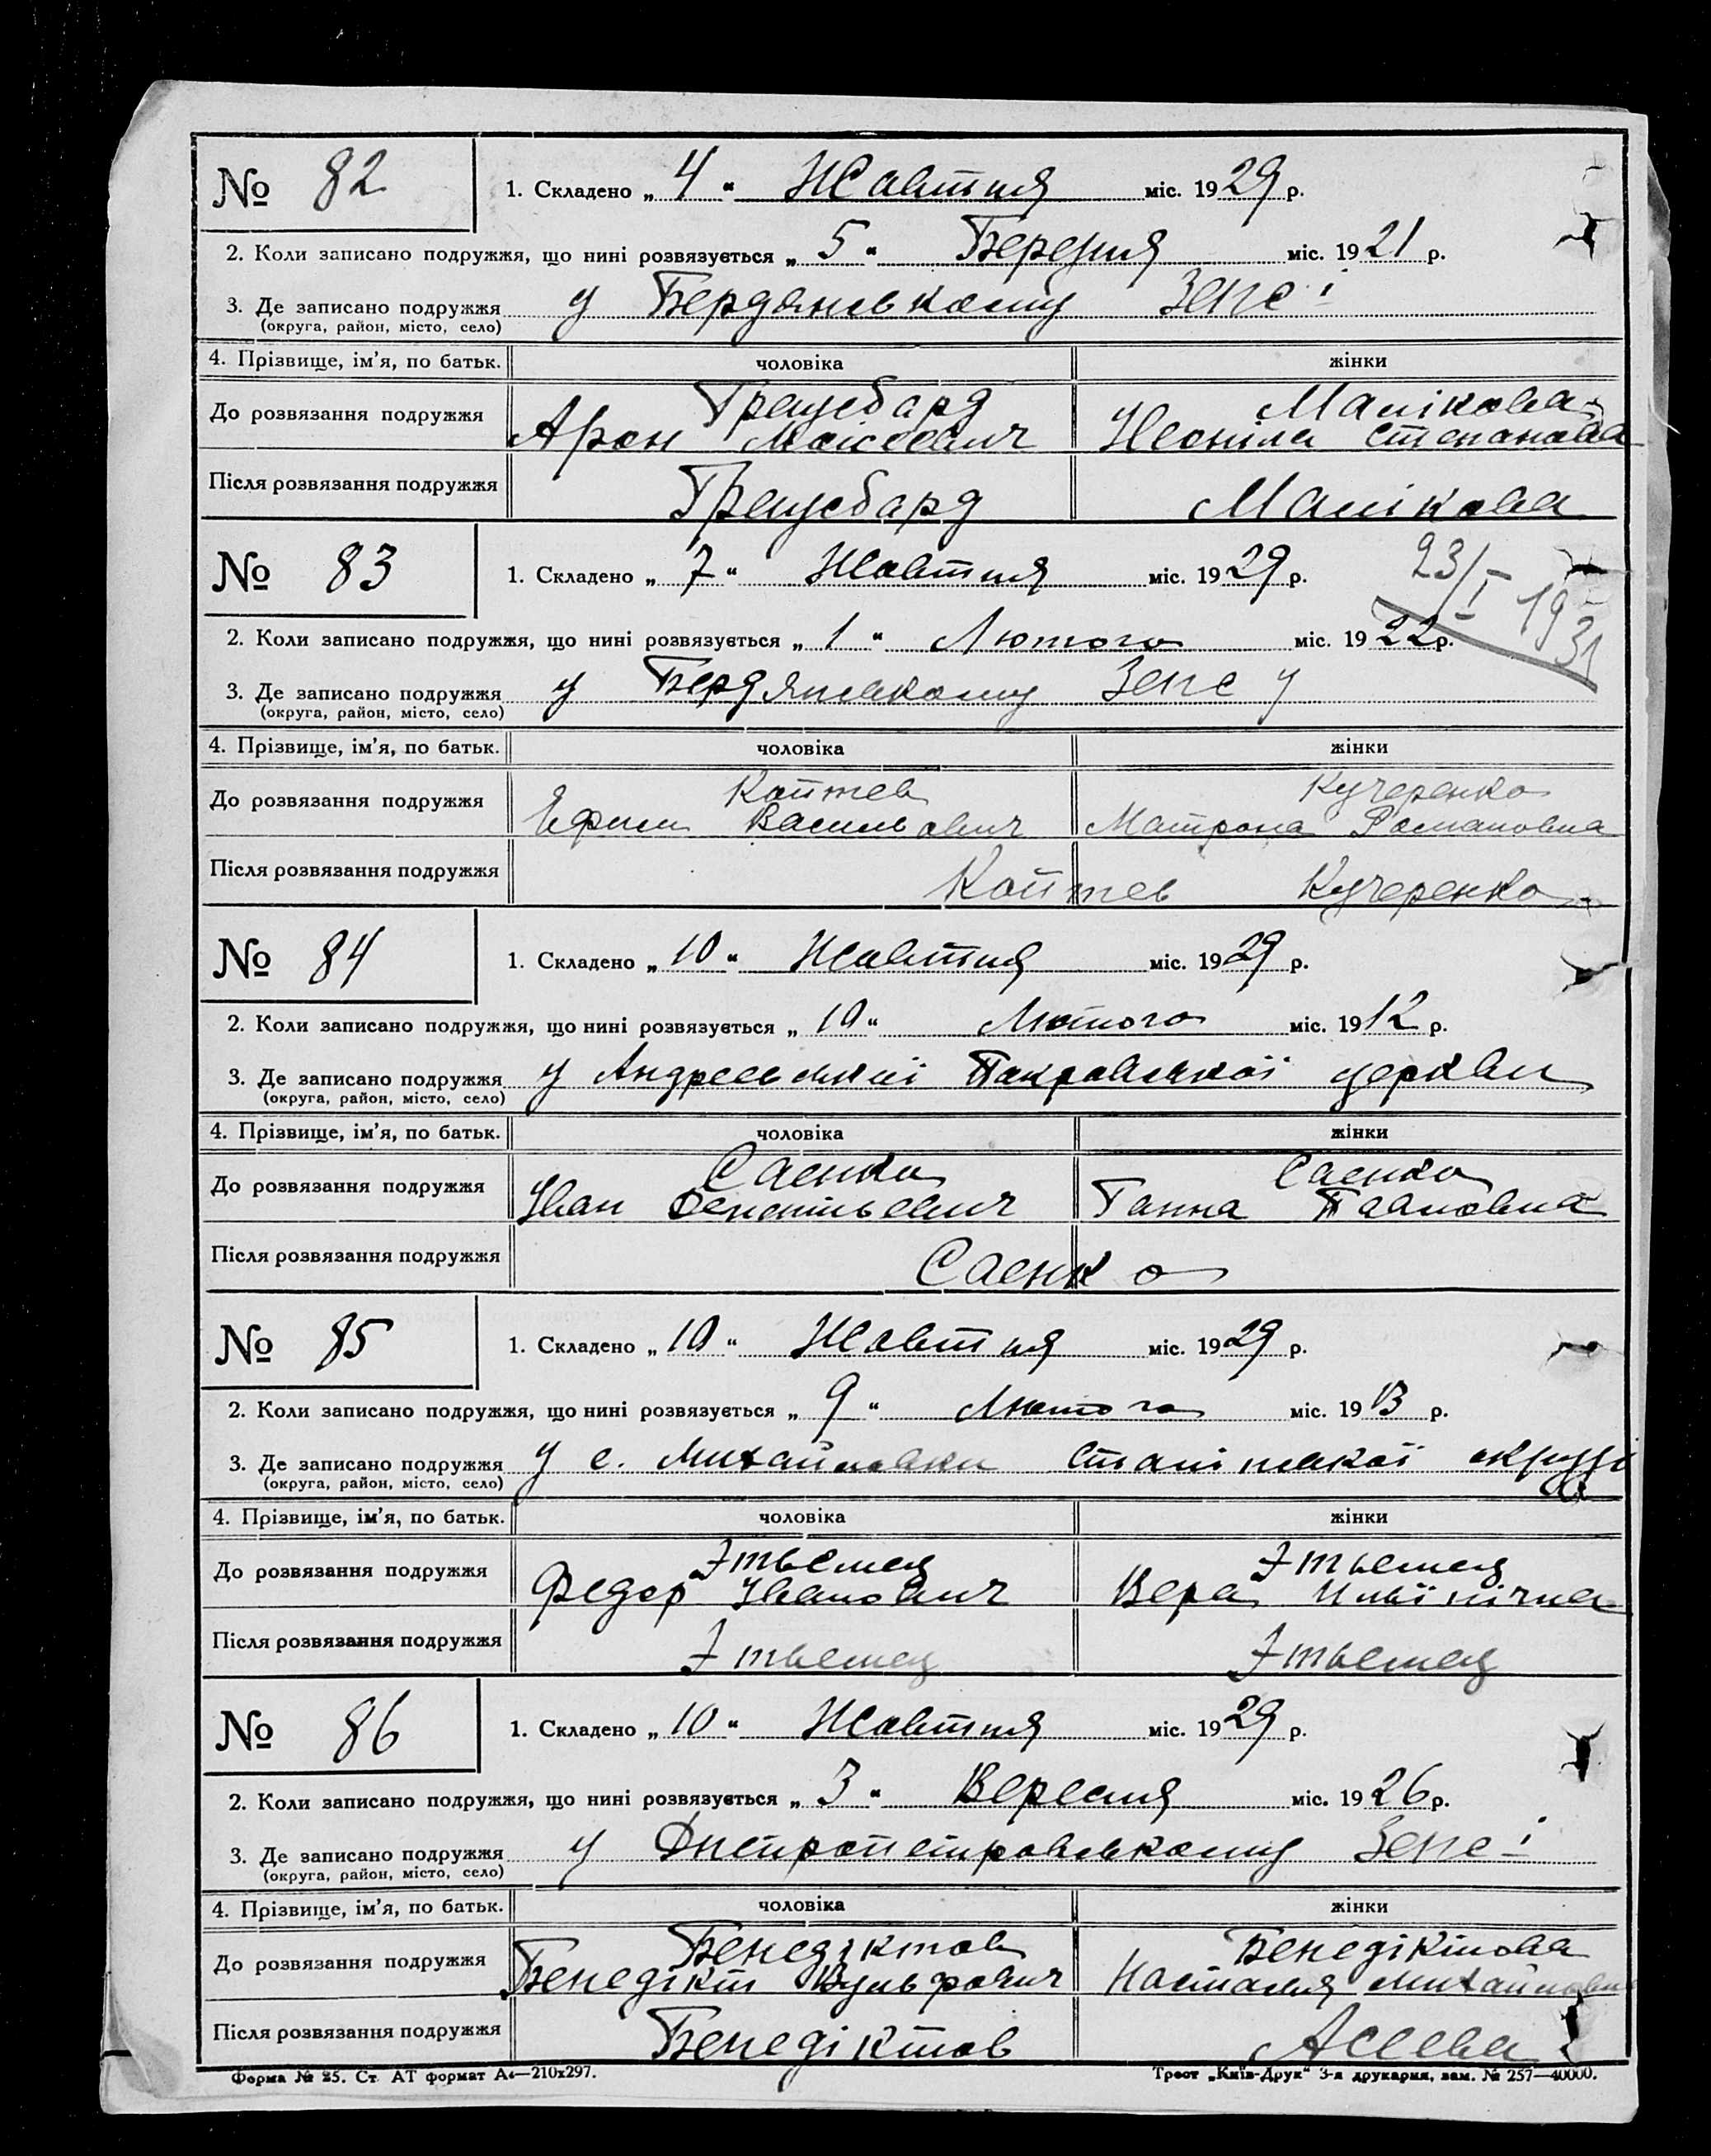 № 82
1. Складено „ 4 “ Жовтня міс. 1929 р.
2. Коли записано подружжя, що нині розвязується „ 5 “ Березня міс. 1921 р.
3. Де записано подружжя у Бердянському Загсі
(округа, район, місто, село)
4. Прізвище, ім’я, по батьк. чоловіка жінки
До розвязання подружжя Маликова
Арон Моісеевич Неоніла Степанова
Після розвязання подружжя Маликова
№ 83
1. Складено „ 7 “ Жовтня міс. 1929 р.
23/I - 1931
2. Коли записано подружжя, що нині розвязується „ 1 “ Лютого міс. 1922 р.
3. Де записано подружжя у Бердянському
(округа, район, місто, село)
4. Прізвище, ім’я, по батьк. чоловіка жінки
Коптев Кучеренко
До розвязання подружжя Ефим Васильович Матрона Романовна
Після розвязання подружжя Коптев Кучеренко
№ 84
1. Складено „ 10 “ Жовтня міс. 1929 р.
2. Коли записано подружжя, що нині розвязується „ 10 “ Лютого міс. 1912 р.
3. Де записано подружжя у Покровської церкви
(округа, район, місто, село)
4. Прізвище, ім’я, по батьк. чоловіка жінки
Саенко Саенко
До розвязання подружжя Іван Ганна Павловна
Після розвязання подружжя Саенко
№ 85
1. Складено „ 10 “ Жовтня міс. 1929 р.
2. Коли записано подружжя, що нині розвязується „ 9 “ Лютого міс. 1913 р.
3. Де записано подружжя у с. Михайловки Сталінської округи
(округа, район, місто, село)
4. Прізвище, ім’я, по батьк. чоловіка жінки
До розвязання подружжя Федор Іванович Вера Ильїнічна
Після розвязання подружжя
№ 86
1. Складено „ 10 “ Жовтня міс. 1929 р.
2. Коли записано подружжя, що нині розвязується „ 3 “ Вересня міс. 1926 р.
3. Де записано подружжя у Днепропетровському Загсі
(округа, район, місто, село)
4. Прізвище, ім’я, по батьк. чоловіка жінки
Бенедіктов Бенедіктова
До розвязання подружжя Бенедікт Вульфович Наталія Михайловна
Після розвязання подружжя Бенедіктов Асеева
Форма № 25. Ст. АТ формат А4—210х297. Трест „Київ-Друк“ 3-я друкарня, зам. № 257—40000.